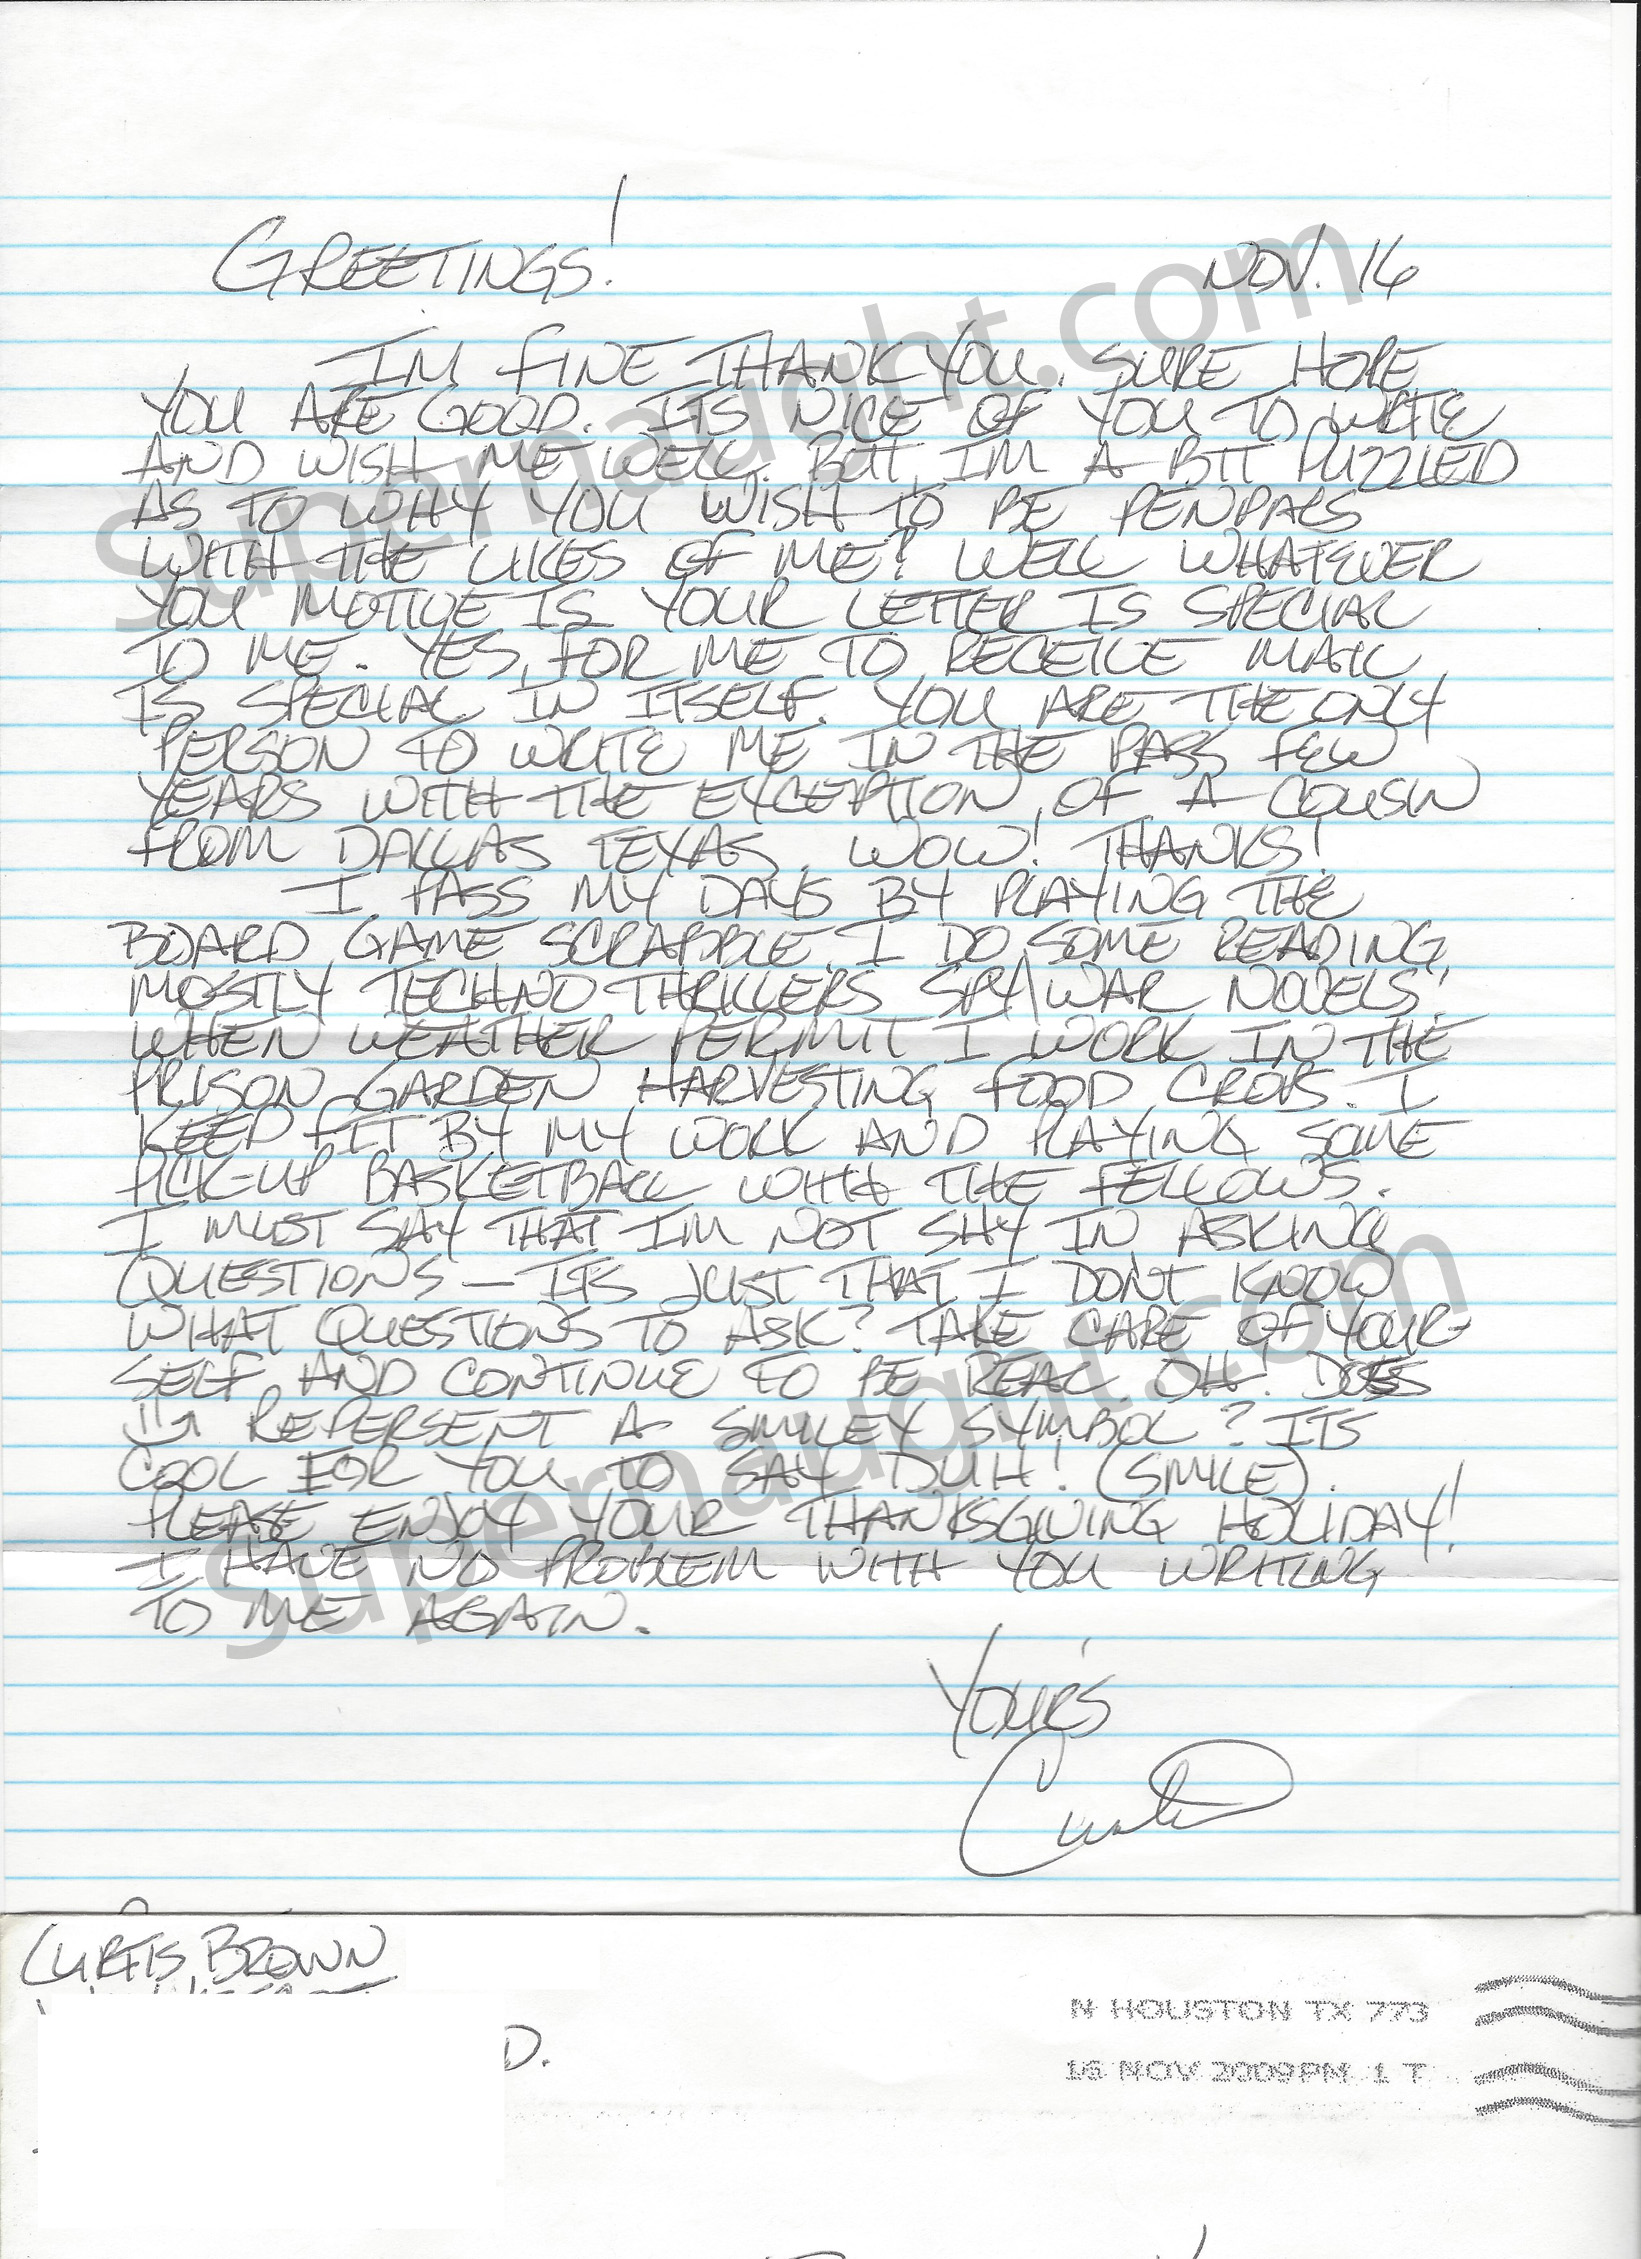 GREETINGS! NOV. 16
IM FINE THANK YOU. SURE HOPE
YOU ARE GOOD. ITS NICE OF YOU TO WRITE
AND WISH ME WELL. BUT, IM A BIT PUZZLED
AS TO WHY YOU WISH TO BE PENPALS
WITH THE LIKES OF ME? WELL WHATEVER
YOU MOTIVE IS YOUR LETTER IS SPECIAL
TO ME. YES, FOR ME TO RECEIVE MAIL
IS SPECIAL IN ITSELF. YOU ARE THE ONLY
PERSON TO WRITE ME IN THE PASS FEW
YEARS WITH THE EXCEPTION, OF A COUSIN
FROM DALLAS TEXAS. WOW! THANKS!
I PASS MY DAYS BY PLAYING THE
BOARD GAME SCRABBLE. I DO SOME READING,
MOSTLY TECHNO THRILLERS SPY\WAR NOVELS.
WHEN WEATHER PERMIT I WORK IN THE
PRISON GARDEN HARVESTING FOOD CROPS. I
KEEP FIT BY MY WORK AND PLAYING SOME
PICK-UP BASKETBALL WITH THE FELLOWS.
I MUST SAY THAT IM NOT SHY IN ASKING
QUESTIONS - ITS JUST THAT I DONT KNOW
WHAT QUESTIONS TO ASK? TAKE CARE OF YOUR-
SELF AND CONTINUE TO BE REAL OH! DOES
REPERSENT A SMILEY SYMBOL? ITS
COOL FOR YOU TO SAY DUH! (SMILE).
PLEASE ENJOY YOUR THANKSGIVING HOLIDAY!
I HAVE NO PROBLEM WITH YOU WRITING
TO ME AGAIN.
YOUR'S
Curtis
CURTIS BROWN
N HOUSTON TX 773
D.
16 NOV 2009 PM 1 T
supernaught.com
supernaught.com